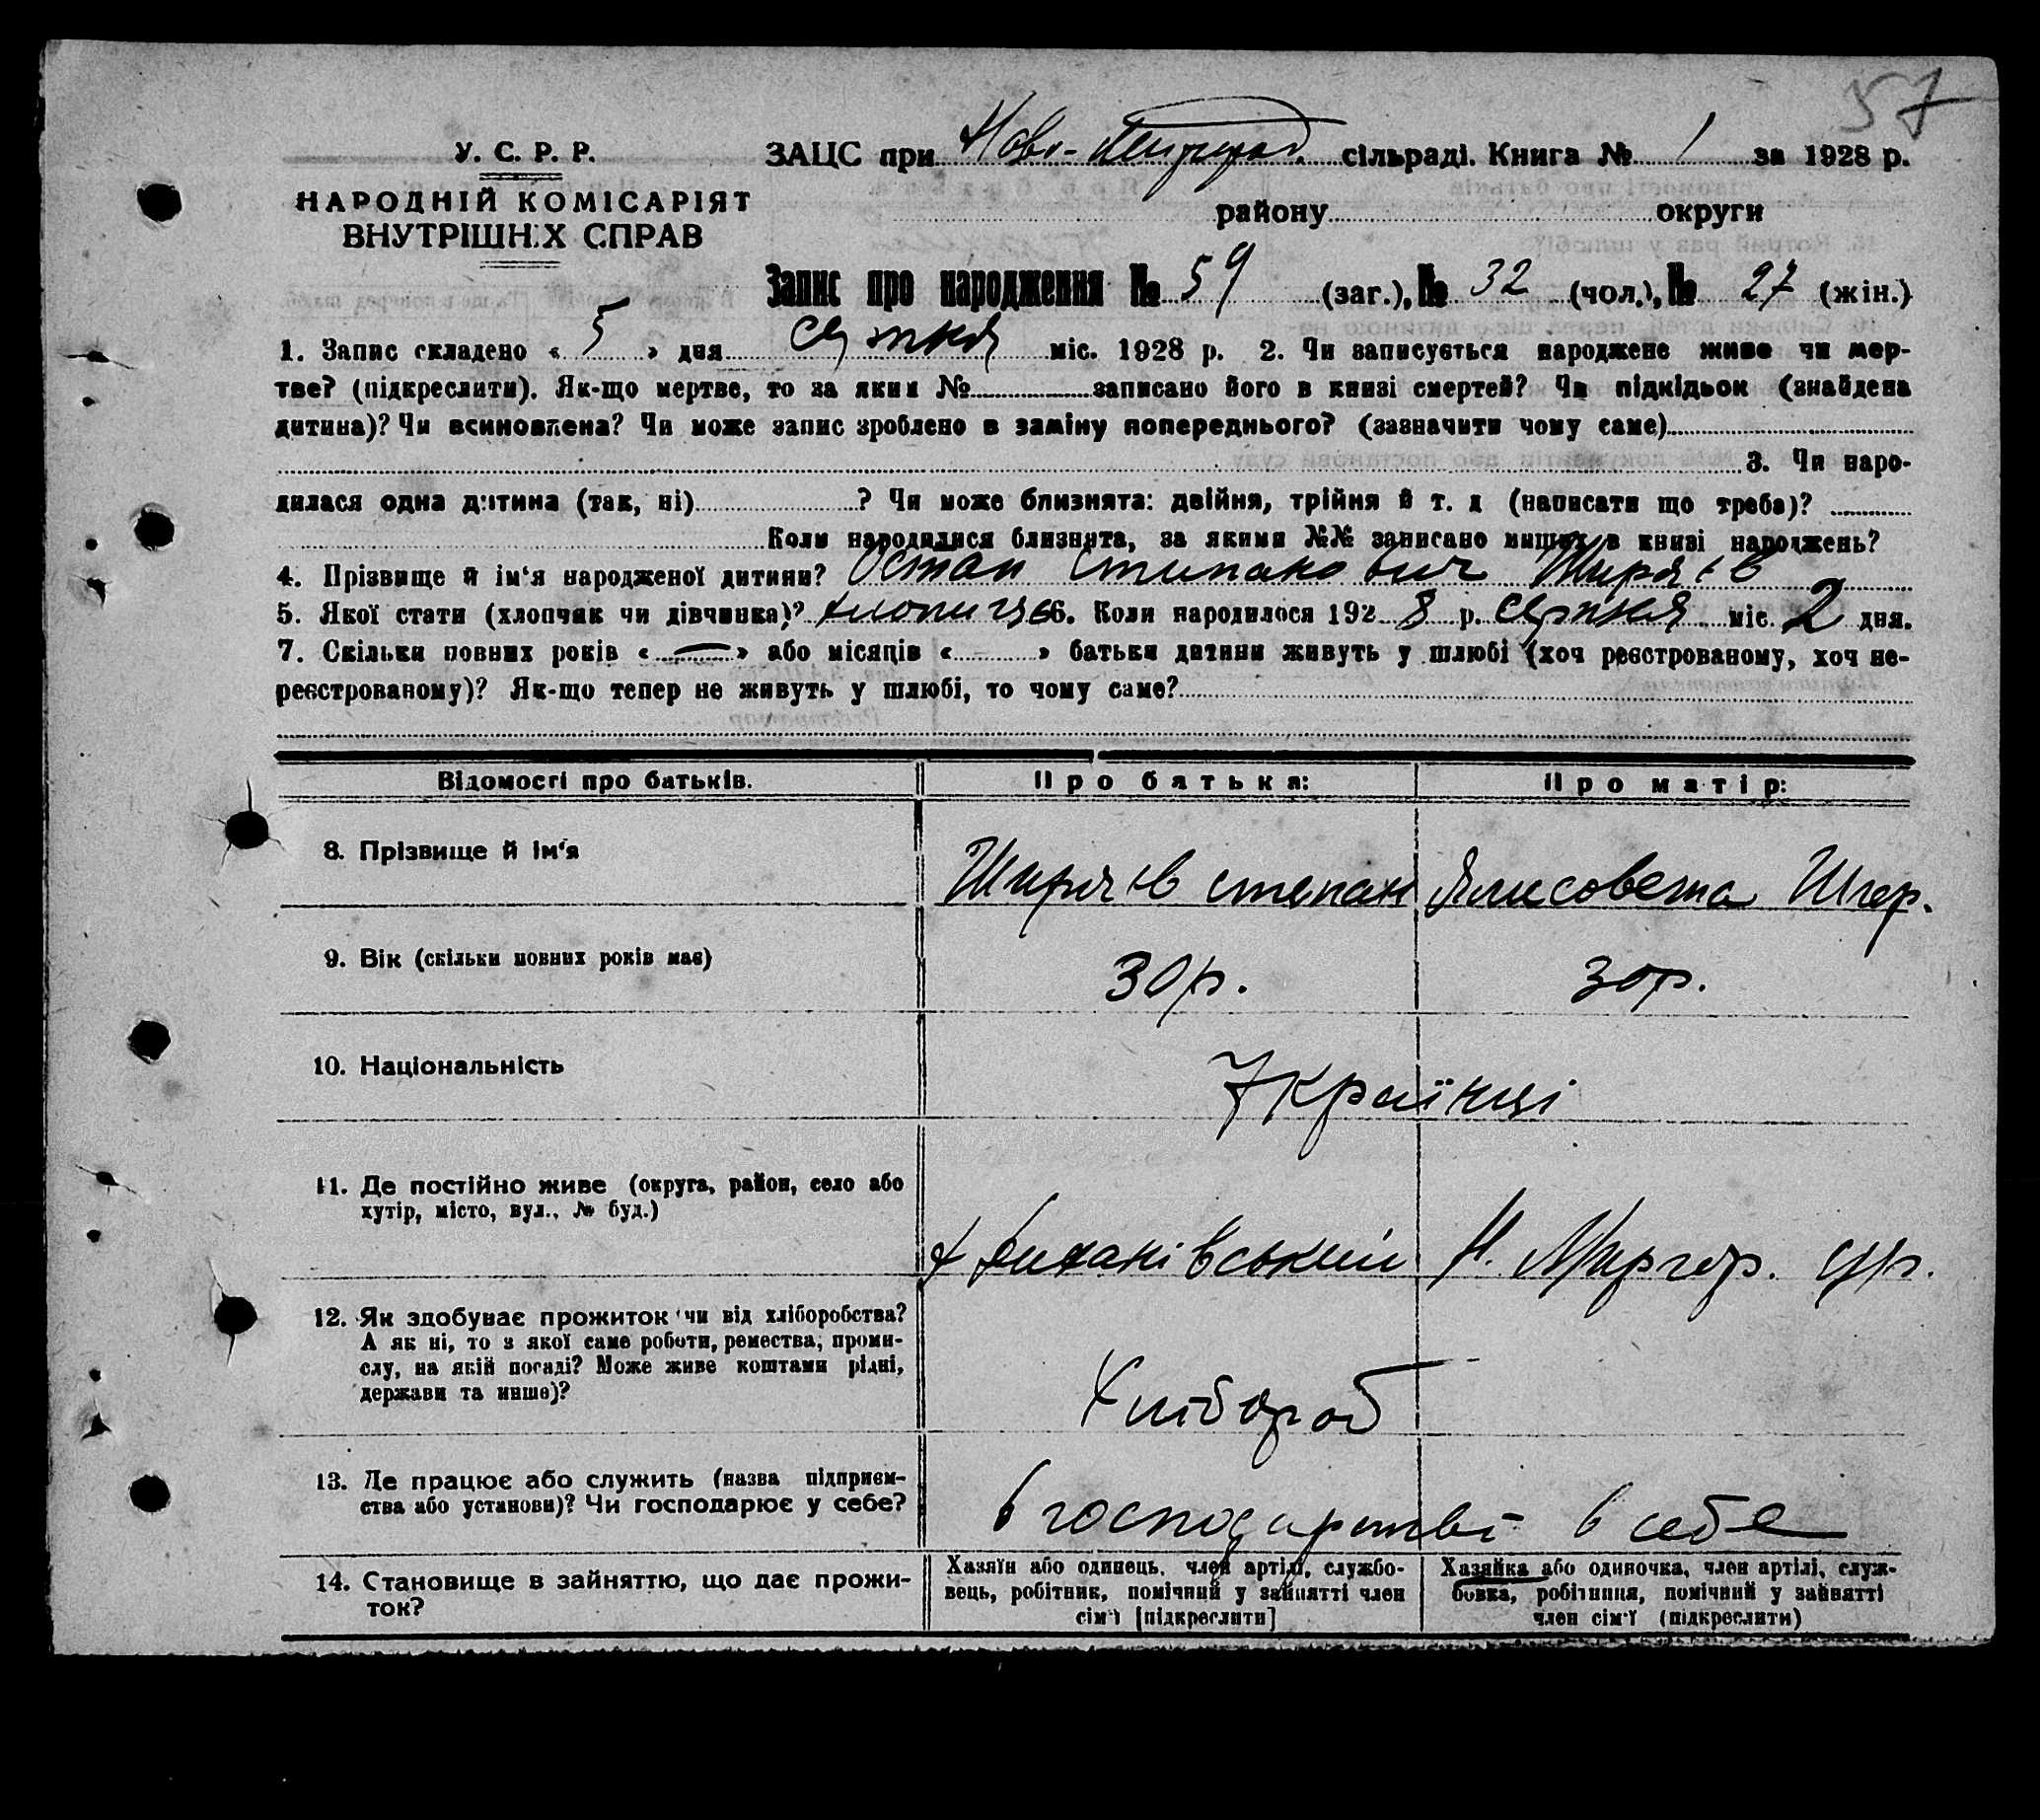 57
У. С. Р. Р.
НАРОДНІЙ КОМІСАРІЯТ
ВНУТРІШНІХ СПРАВ
ЗАЦС при Ново- сільраді. Книга № 1 за 1928 р.
району округи
Запис про народження № 59 (заг.), № 32 (чол.), № 27 (жін.)
1. Запис складено « 5 » дня серпня міс. 1928 р. 2. Чи записується народжене живе чи мер-
тве? (підкреслити). Як-що мертве, то за яким № записано його в книзі смертей? Чи підкідьок (знайдена
дитина)? Чи всиновлена? Чи може запис зроблено в заміну попереднього? (зазначити чому саме)
3. Чи наро-
дилася одна дитина (так, ні) ? Чи може близнята: двійня, трійня й т. д (написати що треба)?
Коли народилися близнята, за якими №№ записано инших в книзі народжень?
4. Прізвище й ім‘я народженої дитини? Остап Степанович Ширяєв
5. Якої стати (хлопчик чи дівчинка)? хлопчик 6. Коли народилося 192 8 р. серпня міс. 2 дня.
7. Скільки повних років « — » або місяців « » батьки дитини живуть у шлюбі (хоч реєстрованому, хоч не-
реєстрованому)? Як-що тепер не живуть у шлюбі, то чому саме?
Відомості про батьків.
Про батька:
Про матір:
8. Прізвище й ім‘я
Ширяєв степан
Ялисовета Шир.
9. Вік (скільки повних років має)
30 р.
30 р.
10. Національність
Українці
11. Де постійно живе (округа, район, село або
хутір, місто, вул., № буд.)
Н. Миргор.
12. Як здобуває прожиток чи від хліборобства?
А як ні, то з якої саме роботи, ремества, проми-
слу, на якій посаді? Може живе коштами рідні,
держави та инше)?
Хлібороб
13. Де працює або служить (назва підприєм-
ства або установи)? Чи господарює у себе?
в господарстві в себе
14. Становище в зайняттю, що дає прожи-
ток?
Хазяїн або одинець, член артілі, службо-
вець, робітник, помічний у зайнятті член
сім‘ї [підкреслити]
Хазяйка або одиночка, член артілі, служ-
бовка, робітниця, помічний у зайнятті
член сім‘ї (підкреслити)